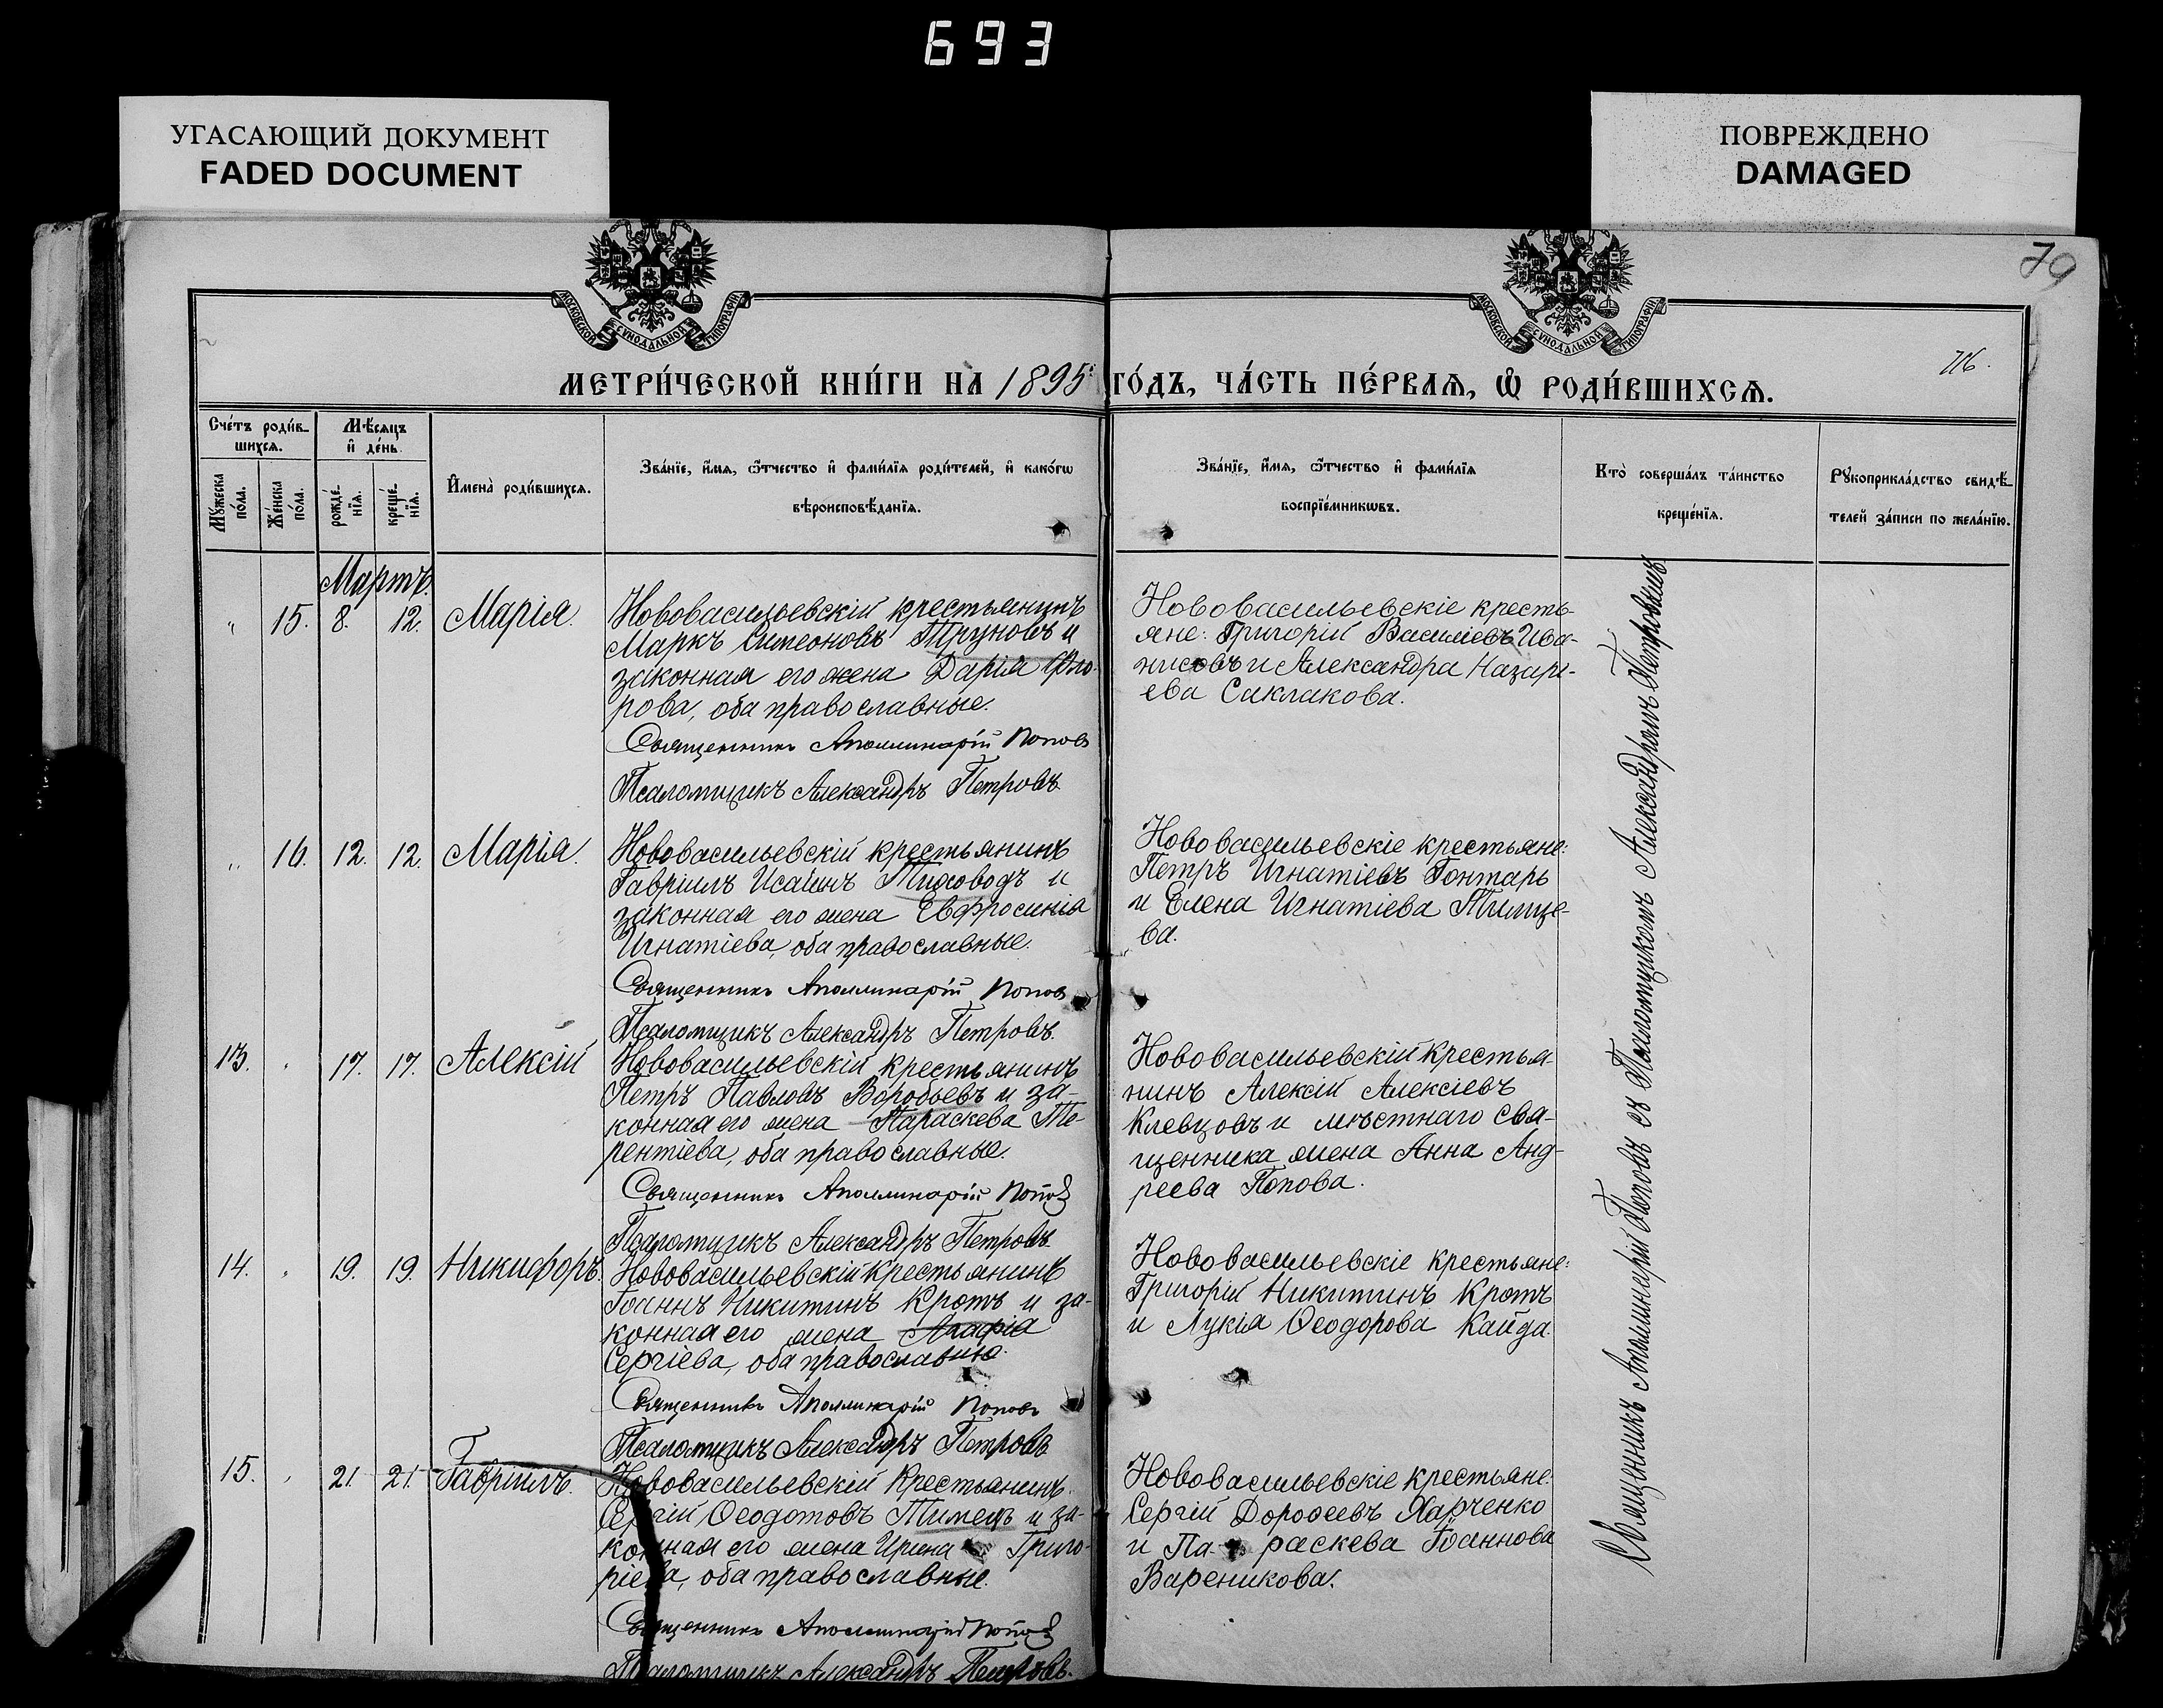 693
УГАСАЮЩИЙ ДОКУМЕНТ
FADED DOCUMENT
ПОВРЕЖДЕНО
DAMAGED
79
716.
МОСКОВСКОЙ СѴНОДАЛЬНОЙ ТИПОГРАФІИ
МОСКОВСКОЙ СѴНОДАЛЬНОЙ ТИПОГРАФІИ
МЕТРИ́ЧЕСКОЙ КНИ́ГИ НА 1895 ГО́ДЪ, ЧА́СТЬ ПЕ́РВАѦ, Ѽ РОДИ́ВШИХСѦ.
Сче́тъ роди́в-
шихсѧ.
Мꙋжеска
по́ла.
Же́нска
по́ла.
Мѣ́сѧцъ
и҆ де́нь.
рожде́-
нїѧ.
креще́-
нїѧ.
И҆мена̀ роди́вшихсѧ.
Зва́нїе, и҆́мѧ, ѻ҆́тчество и҆ фами́лїѧ роди́телей, и҆ како́гѡ
вѣроисповѣ́данїѧ.
Зва́нїе, и҆́мѧ, ѻ҆́тчество и҆ фами́лїѧ
воспрїе́мникѡвъ.
Кто̀ соверша́лъ та́инство
креще́нїѧ.
Рꙋкоприкла́дство свидѣ́-
телей за́писи по жела́нїю.
Мартъ.
" 15. 8. 12. Марія.
Нововасильевскій крестьянинъ
Маркъ Симеоновъ Труновъ и
законная его жена Дарія Фло-
рова, оба православные.
Священникъ Аполлинарій Попов
Псаломщикъ Александръ Петровъ
Нововасильевскіе кресть-
яне: Григорій Василіевъ Ива-
нисовъ и Александра Назарі-
ева Саклакова.
" 16. 12. 12. Марія.
Нововасильевскій крестьянинъ
Гавріилъ Исаинъ Тиховодъ и
законная его жена Евфросинія
Игнатіева, оба православные.
Священникъ Аполлинарій Попов
Псаломщикъ Александръ Петровъ.
Нововасильевскіе крестьяне:
Петръ Игнатіевъ Гонтарь
и Елена Игнатіева Тимце-
ва.
13. " 17. 17. Алексій
Нововасильевскій крестьянинъ
Петръ Павловъ Воробьевъ и за-
конная его жена Параскева Те-
рентіева, оба православные.
Священникъ Аполлинарій Попов
Псаломщикъ Александръ Петровъ
Нововасильевскій крестья-
нинъ Алексій Алексіевъ
Клевцовъ и мѣстнаго свя-
щенника жена Анна Анд-
реева Попова.
14. " 19. 19. Никифоръ.
Нововасильевскій крестьянинъ
Іоаннъ Никитинъ Кротъ и за-
конная его жена Агафія
Сергіева, оба православные.
Священникъ Аполлинарій Поповъ
Псаломщикъ Александръ Петровъ
Нововасильевскіе крестьяне:
Григорій Никитинъ Кротъ
и Лукія Ѳеодорова Кайда.
15. " 21. 21. Гавріилъ.
Нововасильевскій крестьянинъ
Сергій Ѳеодотовъ Тимецъ и за-
конная его жена Ирина Григо-
ріева, оба православные.
Священникъ Аполлинарій Попов
Псаломщикъ Александръ Петровъ.
Нововасильевскіе крестьяне:
Сергій Дороѳеевъ Харченко
и Па- раскева Іоаннова
Вареникова.
Священникъ Аполлинарій Поповъ съ Псаломщикомъ Александромъ Петровымъ